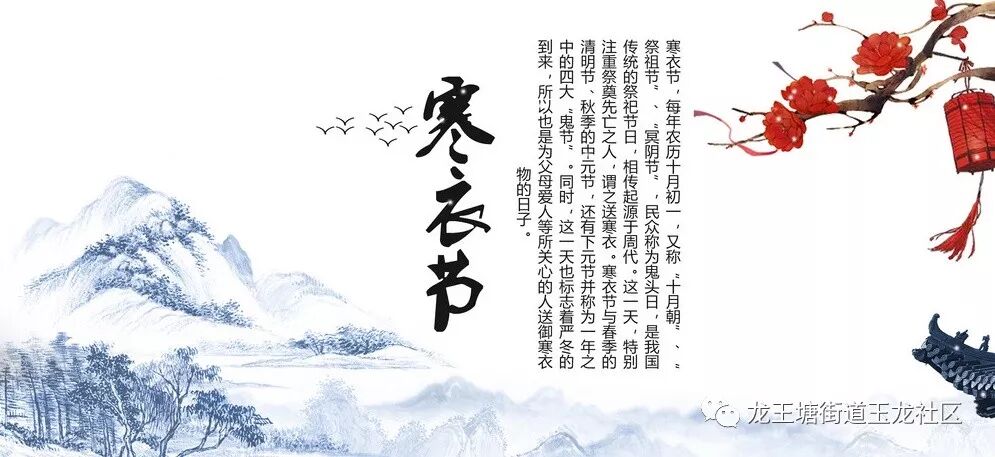 寒衣节
寒衣节，每年农历十月初一，又称“十月朝”、“
祭祖节”、“冥阴节”，民众称为鬼头日，是我国
传统的祭祀节日，相传起源于周代。这一天，特别
注重祭奠先亡之人，谓之送寒衣。寒衣节与春季的
清明节、秋季的中元节，还有下元节并称为一年之
中的四大“鬼节”。同时，这一天也标志着严冬的
到来，所以也是为父母爱人等所关心的人送御寒衣
物的日子。
龙王塘街道玉龙社区